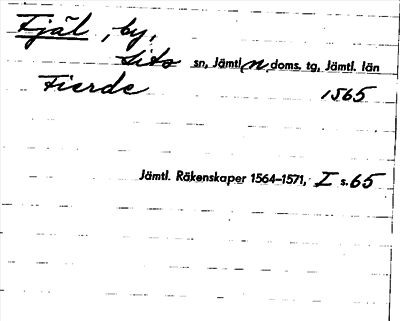 Fjäl, by,
Lits sn, Jämtl. n. doms. tg, Jämtl. län
Fierde 1565
Jämtl. Räkenskaper 1564–1571, I s. 65